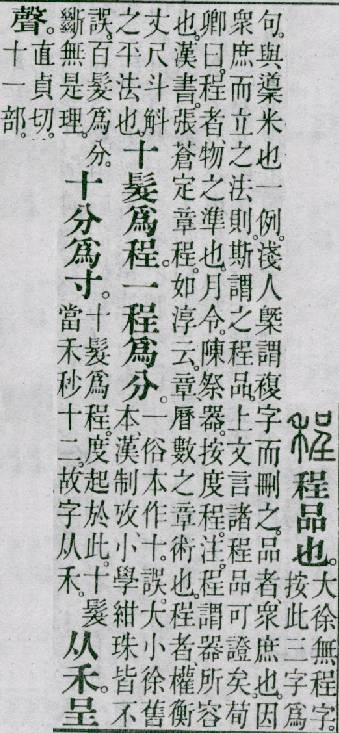 程品也。
大徐無程字。
按此三字爲
句。與䆃米也一例。淺人槩謂複字而刪之。品者眾庶也。因
眾庶而立之法則。斯謂之程品。上文言諸程品可證矣。荀
卿曰。程者物之準也。月令。陳祭器。按度程。注。程謂器所容
也。漢書。張蒼定章程。如淳云。章。曆數之章術也。程者權衡
丈尺斗斛
之平法也。
十髮爲程。一程爲分。
一俗本作十。誤。大小徐舊
本漢制攷小學紺珠皆不
誤。百髮爲分。
斷無是理。
十分爲寸。
十髮爲程。度起於此。十髮
當禾秒十二。故字从禾。
从禾。呈
聲。
直貞切。
十一部。